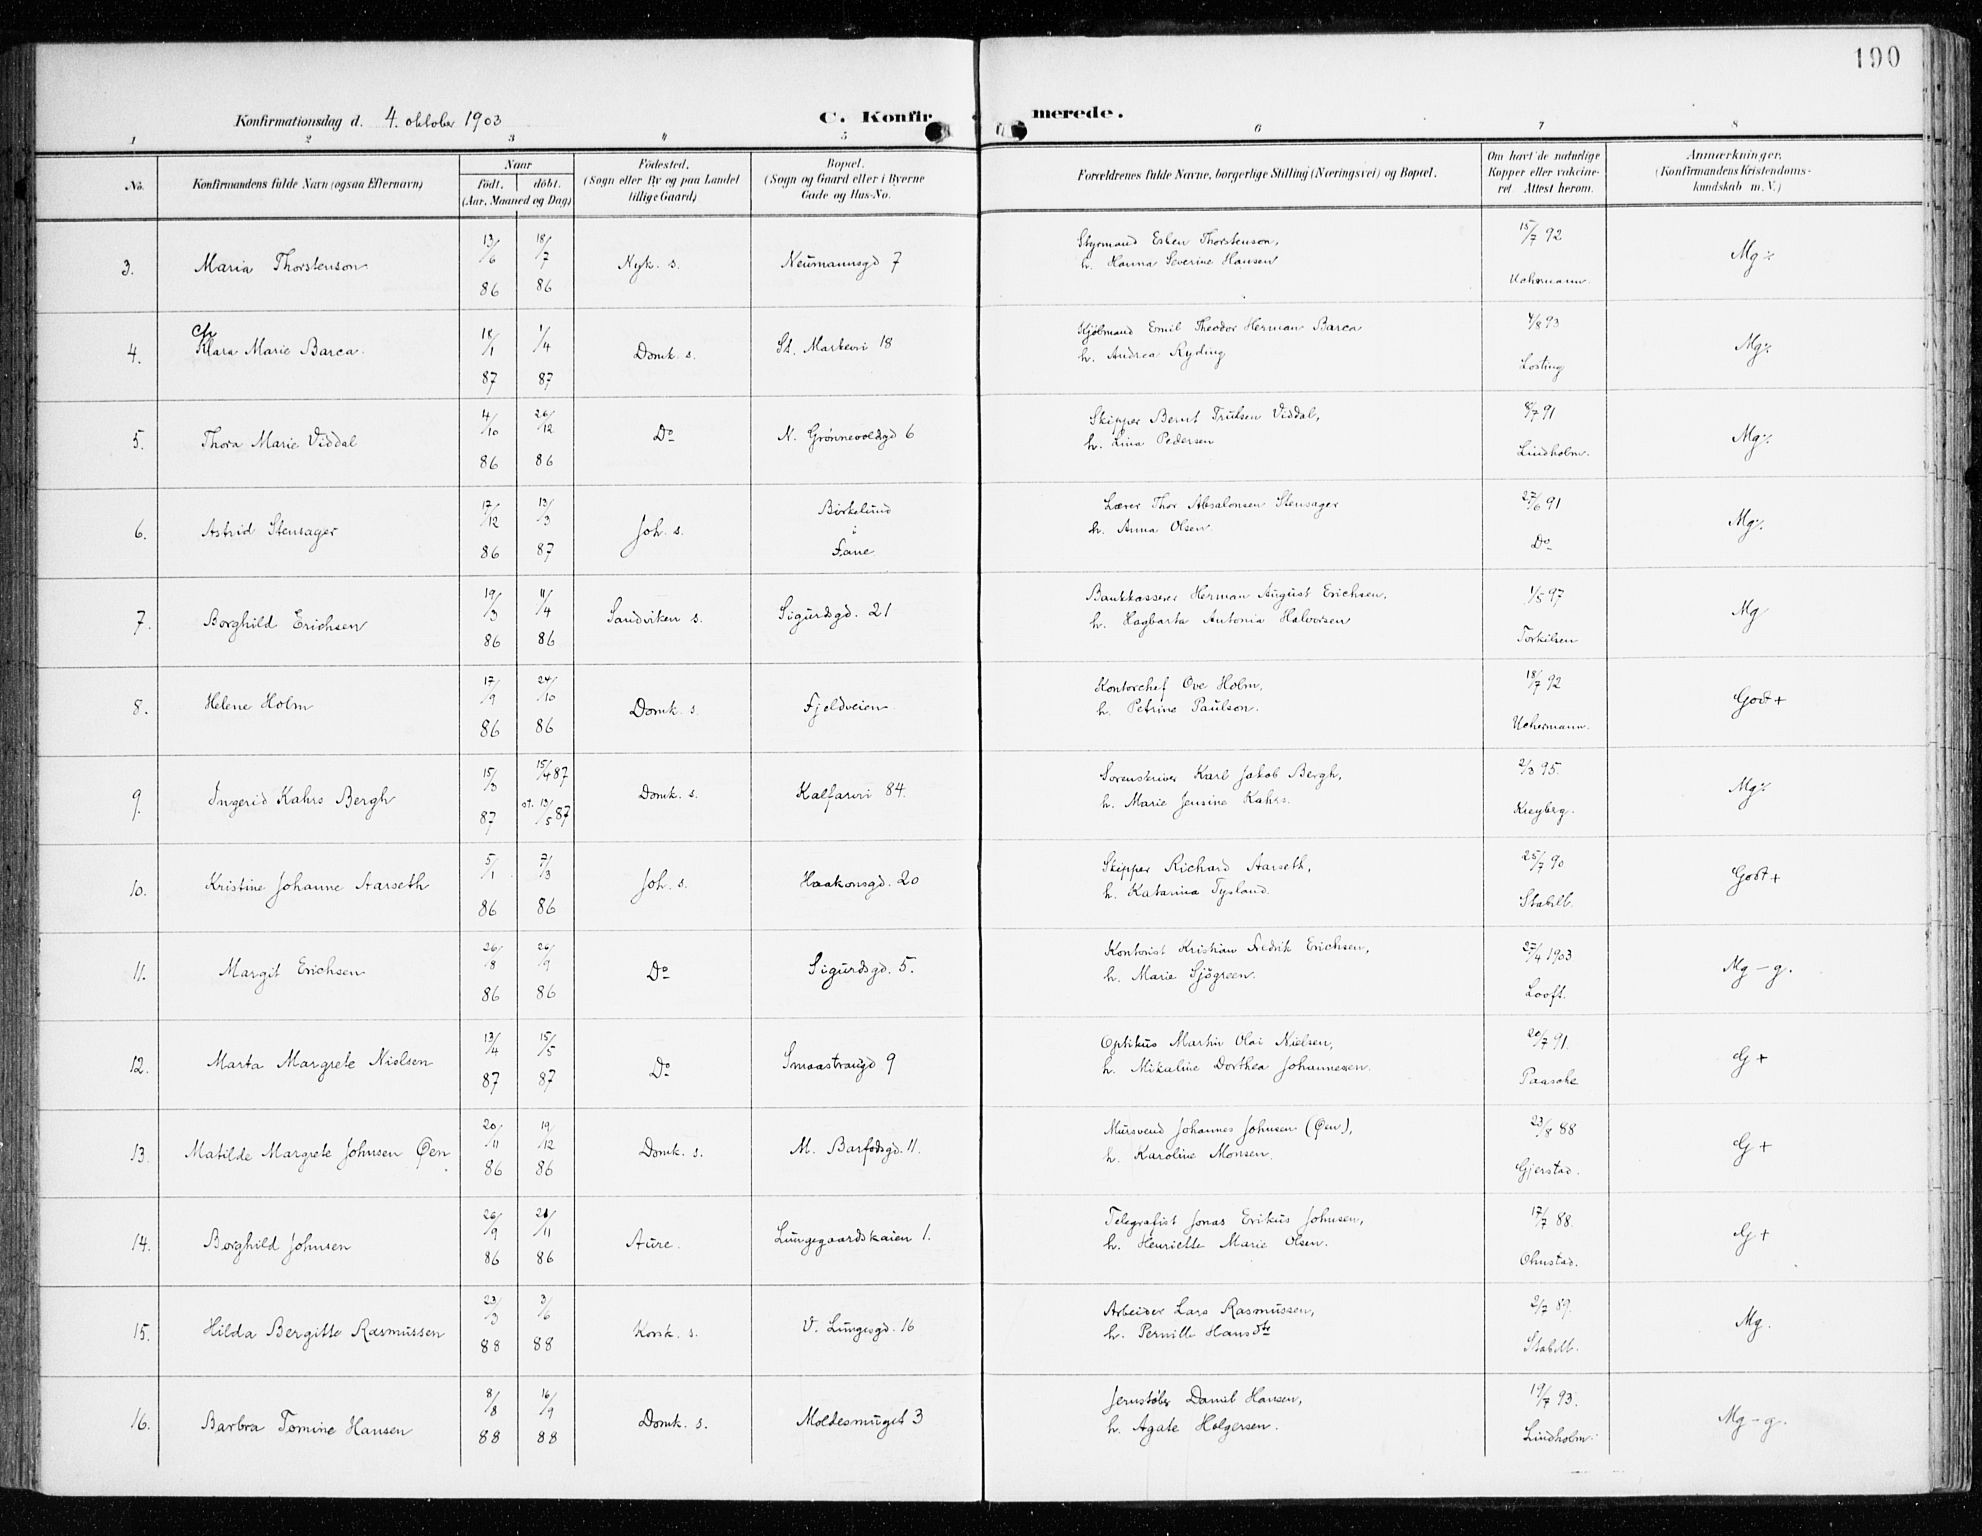 190
Konfirmationsdag d. 4. oktober 1903
C. Konfir merede.
1 2 3 4 5 6 7 8
No. Konfirmandens fulde Navn (ogsaa Efternavn) Naar født. døbt. (Aar, Maaned og Dag) Fødested. (Sogn eller By og paa Landet tillige Gaard) Bopæl. (Sogn og Gaard eller i Byerne Gade og Hus-No. Forældrenes fulde Navne, borgerlige Stilling (Næringsvei) og Bopæl. Om havt de naturlige Kopper eller vakcineret. Attest herom. Anmærkninger. (Konfirmandens Kristendomskundskab m. V.)
3. Maria Thorstenson 13/6 86 18/7 86 Nyk. s. Neumannsgd 7 Styrmand Esben Thorstenson, 15/7 92 Mg÷
h. Hanna Severine Hansen Uchermann.
4. Clara Marie Barca. 18/1 87 1/4 87 Domk. s. St. Markevei 18 Kjølmand Emil Theodor Herman Barca 4/8 93 Mg%
h. Andrea Ryding Losting
5. Thora Marie Viddal 4/10 86 26/12 86 Do N. Grønnevoldsgd 6 Skipper Bernt Trulsen Viddal, 8/7 91 Mg%
h. Lina Pedersen Lindholm.
6. Astrid Stensager 17/12 86 13/3 87 Joh. s. Birkelund i Fane Lærer Thor Absalonsen Stensager 27/6 91 Mg%
h. Anna Olsen. Do
7. Borghild Erichsen 19/3 86 11/4 86 Sandviken s. Sigurdsgd. 21 Bankkasserer Herman August Erichsen, 1/5 97 Mg
h. Hagbarta Antonia Halvorsen Torkilsen
8. Helene Holm 17/9 86 24/10 86 Domk. s. Fjeldveien Kontorchef Ove Holm, 18/7 92 Godt+
h. Petrine Paulson. Uchermann.
9. Ingerid Kahrs Bergh 15/3 87 15/4 87 st. 13/5 87 Domk. s. Kalfarvei 84. Sorenskriver Karl Jakob Bergh, 2/3 95. Mg%
h. Marie Jensine Kahrs.
10. Kristine Johanne Aarseth 5/1 86 7/3 86 Joh. s. Haakonsgd. 20 Skipper Richard Aarseth, 25/7 90 Godt+
h. Katarina Tysland. Stabell.
11. Margit Erichsen 26/8 86 26/9 86 Do Sigurdsgd. 5. Kontorist Kristian Fredrik Erichsen, 27/4 1903 Mg-g.
h. Marie Sjögreen. Looft.
12. Marta Margrete Nielsen 13/4 87 15/5 87 Do Smaastrandgd 9 Optikus Martin Olai Nielsen, 20/7 91. G+
h. Mikaline Dorthea Johannesen. Paasche
13. Matilde Margrete Johnsen Øen 20/11 86 19/12 86 Domk. s. M. Barfodsgd. 11. Mursvend Johannes Johnsen (Øen), 23/8 88 G+
h. Karoline Monsen. Gjerstad.
14. Borghild Johnsen 26/9 86 21/11 86 Aure. Lungegaardskaien 1. Telegrafist Jonas Erikus Johnsen, 17/7 88. G+
h. Henriette Marie Olsen. Ohnstad.
15. Hilda Bergitte Rasmussen 23/3 88 3/6 88 Korsk. s. V. Lungesgd. 16 Arbeider Lars Rasmussen, 2/7 89. Mg.
h. Pernille Hansdtr Stabell.
16. Barbra Tomine Hansen 8/8 88 16/9 88 Domk. s. Moldesmuget 3 Jernstøber Daniel Hansen, 19/7 93. Mg-g.
h. Agate Holgersen. Lindholm.